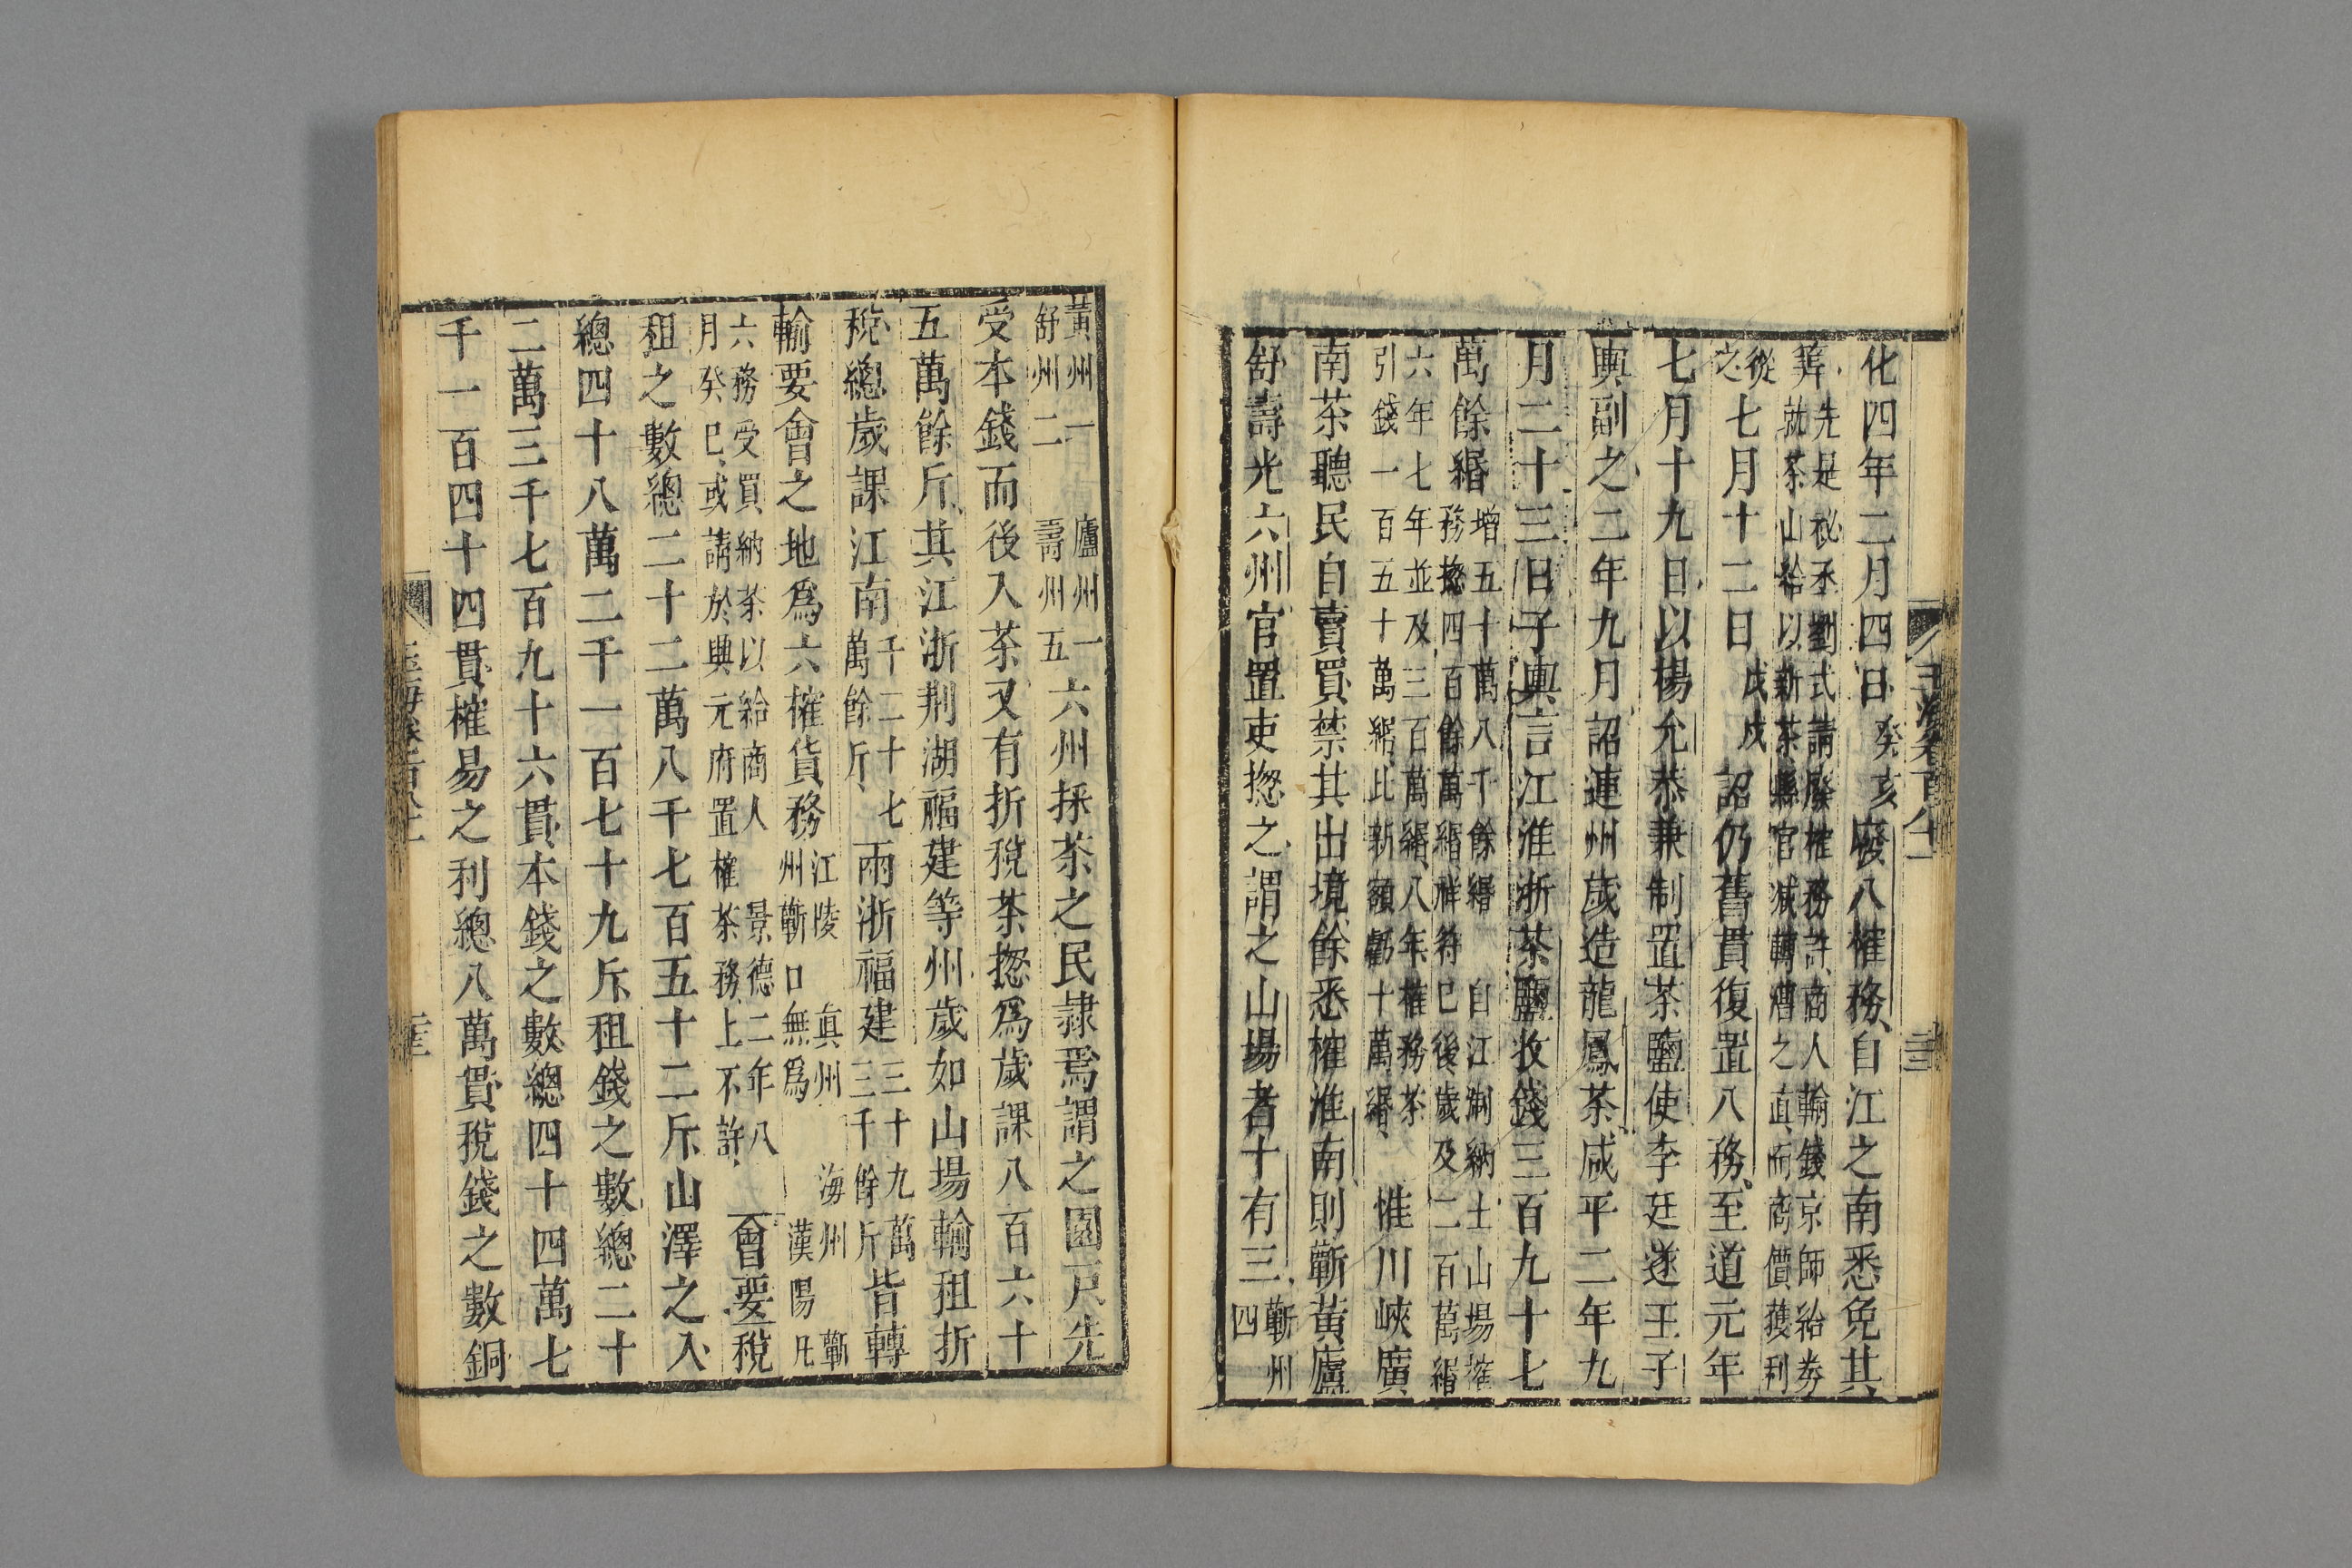 化四年二月四日癸亥廢八榷務自江之南悉免其
等先是祕丞劉式請廢榷務許商人輸錢京師給券
就茶山給以新茶縣官減轉漕之直而商價獲利
從之七月十二日戊戌詔仍舊貫復置八務至道元年
七月十九日以楊允恭兼制置茶鹽使李廷遂王子
輿副之二年九月詔建州歲造龍鳳茶咸平二年九
月二十三日子輿言江淮浙茶鹽收錢三百九十七
萬餘緡增五十萬八千餘緡 自江湖納土山場榷
務揔四百餘萬緡祥符已後歲及二百萬緡
六年七年並及三百萬緡八年榷務茶
引錢一百五十萬緡比新額虧十萬緡 惟川峽廣
南茶聽民自賣買禁其出境餘悉榷淮南則蘄黃廬
舒壽光六州官置吏揔之謂之山場者十有三蘄州四
黃州一 廬州一
舒州二 壽州五 六州採茶之民隷焉謂之園戸先
受本錢而後入茶又有折稅茶揔爲歲課八百六十
五萬餘斤其江浙荆湖福建等州歲如山場輸租折
稅總歲課江南千二十七萬餘斤兩浙福建三十九萬三千餘斤皆轉
輸要會之地爲六榷貨務江陵 真州 海州 蘄
州蘄口無爲 漢陽 凡
六務受買納茶以給商人 景德二年八
月癸巳或請於興元府置榷茶務上不許 會要稅
租之數總二十二萬八千七百五十二斤山澤之入
總四十八萬二千一百七十九斤租錢之數總二十
二萬三千七百九十六貫本錢之數總四十四萬七
千一百四十四貫榷易之利總八萬貫稅錢之數銅